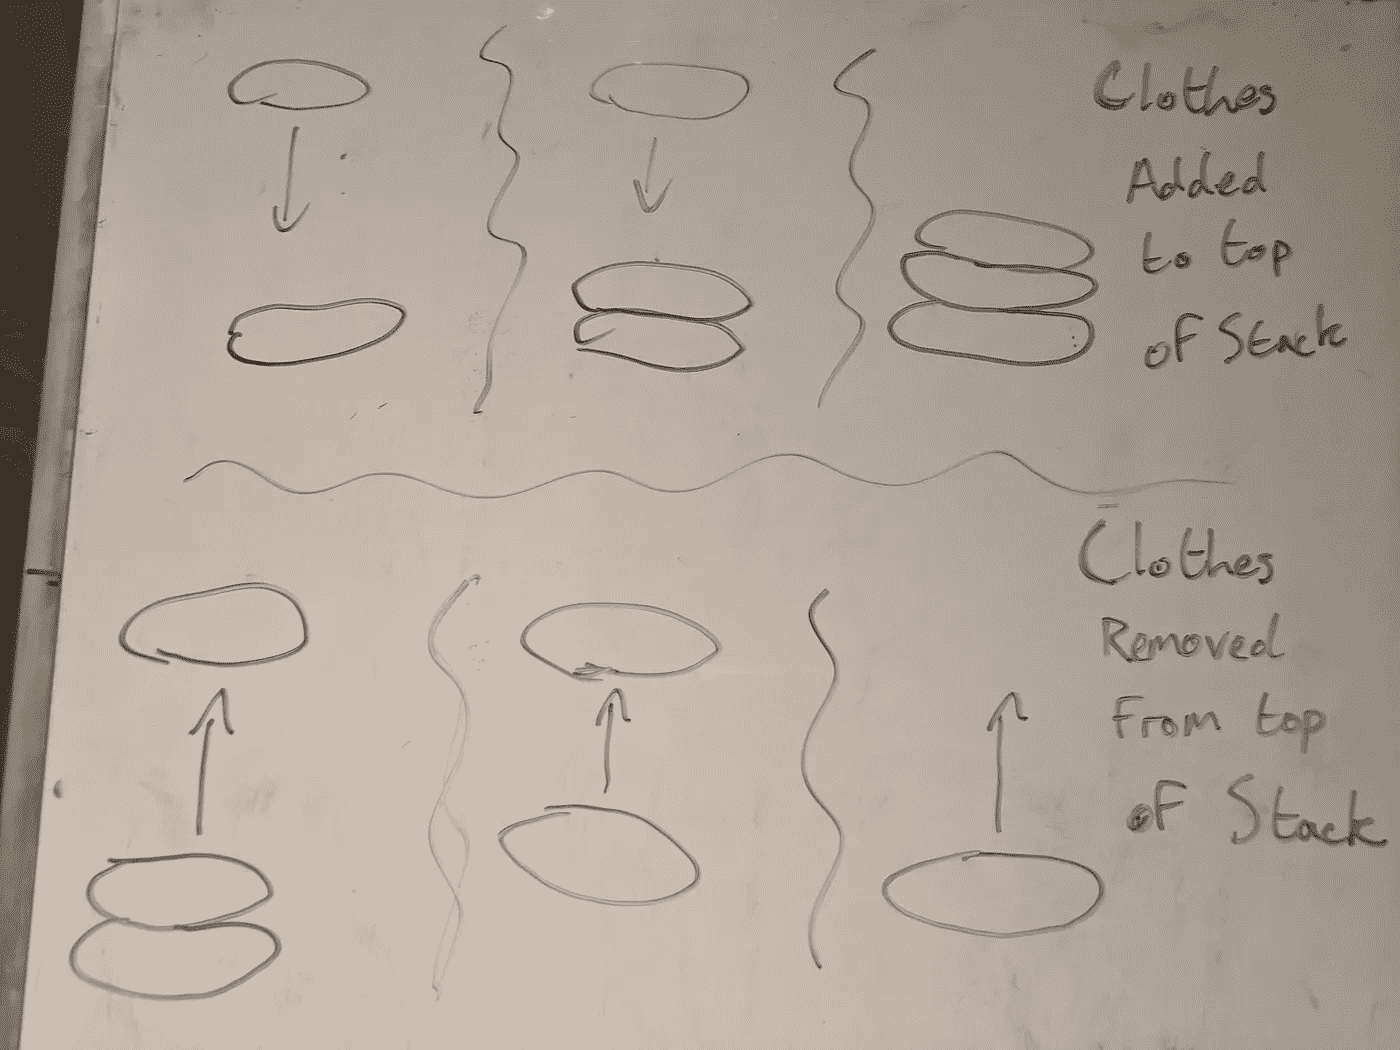 Clothes
Added
to top
of Stack
Clothes
Removed
From top
of Stack